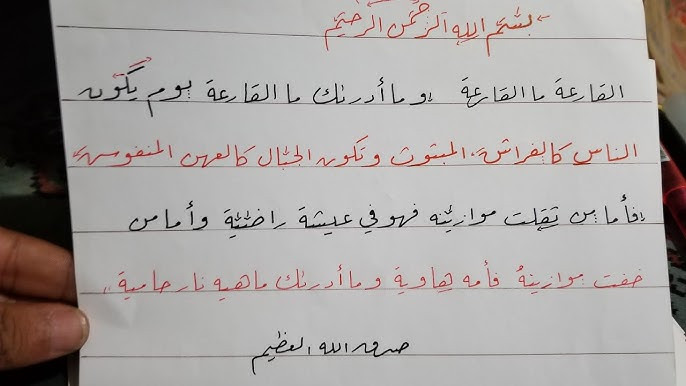 بسم الله الرحمن الرحيم
القارعة ما القارعة وما أدرىك ما القارعة يوم يكون
الناس كالفراش المبتوت وتكون الجبال كالعهن المنفوس
فأما من تقلت موازينه فهو في عيشة راضية وأما من
خفت موازينهُ فأمه هاوية وما أدرىك ماهيه نار حامية
صدق الله العظيم